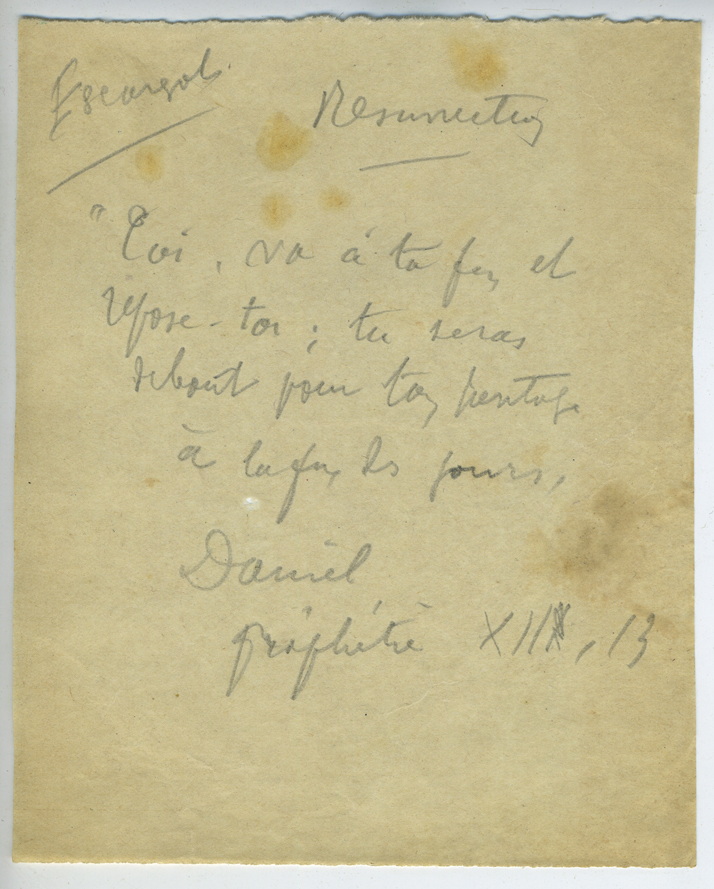 Escargots.
Résurrection
"Toi, va à ta fin et
repose-toi ; tu seras
debout pour ton partage
à la fin des jours,
Daniel
prophétie XII, 13